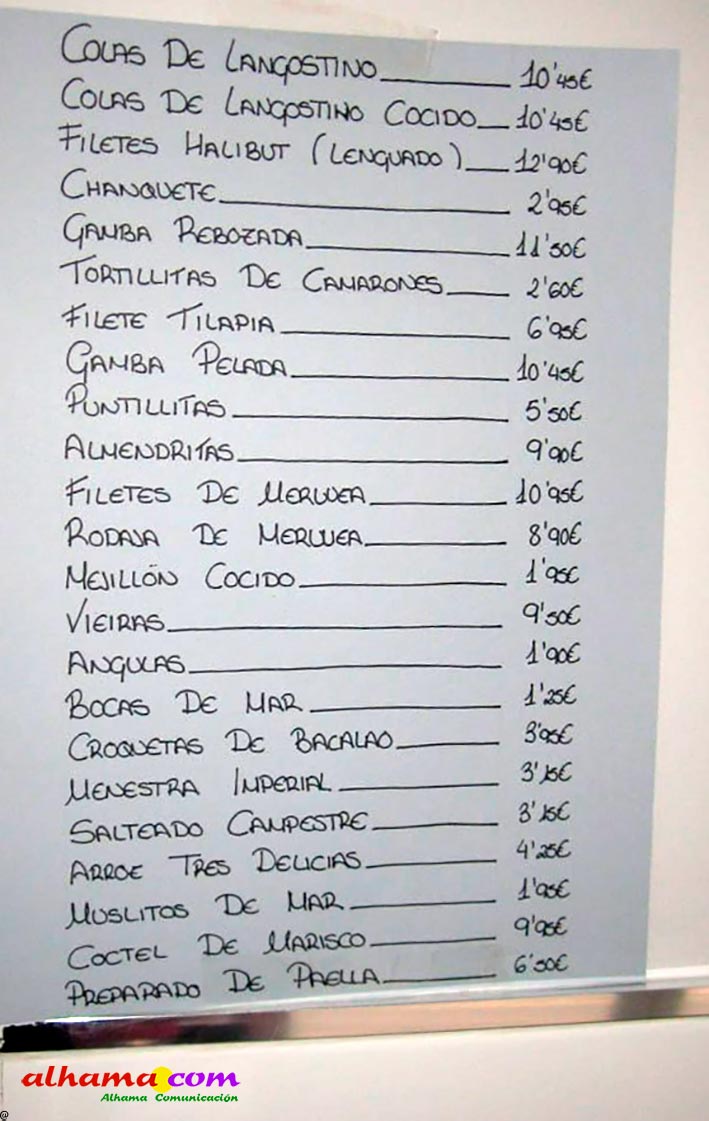 COLAS DE LANGOSTINO 10'45€
COLAS DE LANGOSTINO COCIDO 10'45€
FILETES HALIBUT (LENGUADO) 12'90€
CHANQUETE 2'95€
GAMBA REBOZADA 11'50€
TORTILLITAS DE CAMARONES 2'60€
FILETE TILAPIA 6'95€
GAMBA PELADA 10'45€
PUNTILLITAS 5'50€
ALMENDRITAS 9'90€
FILETES DE MERLUZA 10'95€
RODAJA DE MERLUZA 8'90€
MEJILLÓN COCIDO 1'95€
VIEIRAS 9'50€
ANGULAS 1'90€
BOCAS DE MAR 1'25€
CROQUETAS DE BACALAO 3'95€
MENESTRA IMPERIAL 3'15€
SALTEADO CAMPESTRE 3'15€
ARROE TRES DELICIAS 4'25€
MUSLITOS DE MAR 1'95€
COCTEL DE MARISCO 9'95€
PREPARADO DE PAELLA 6'50€
alhama.com
Alhama Comunicación
@